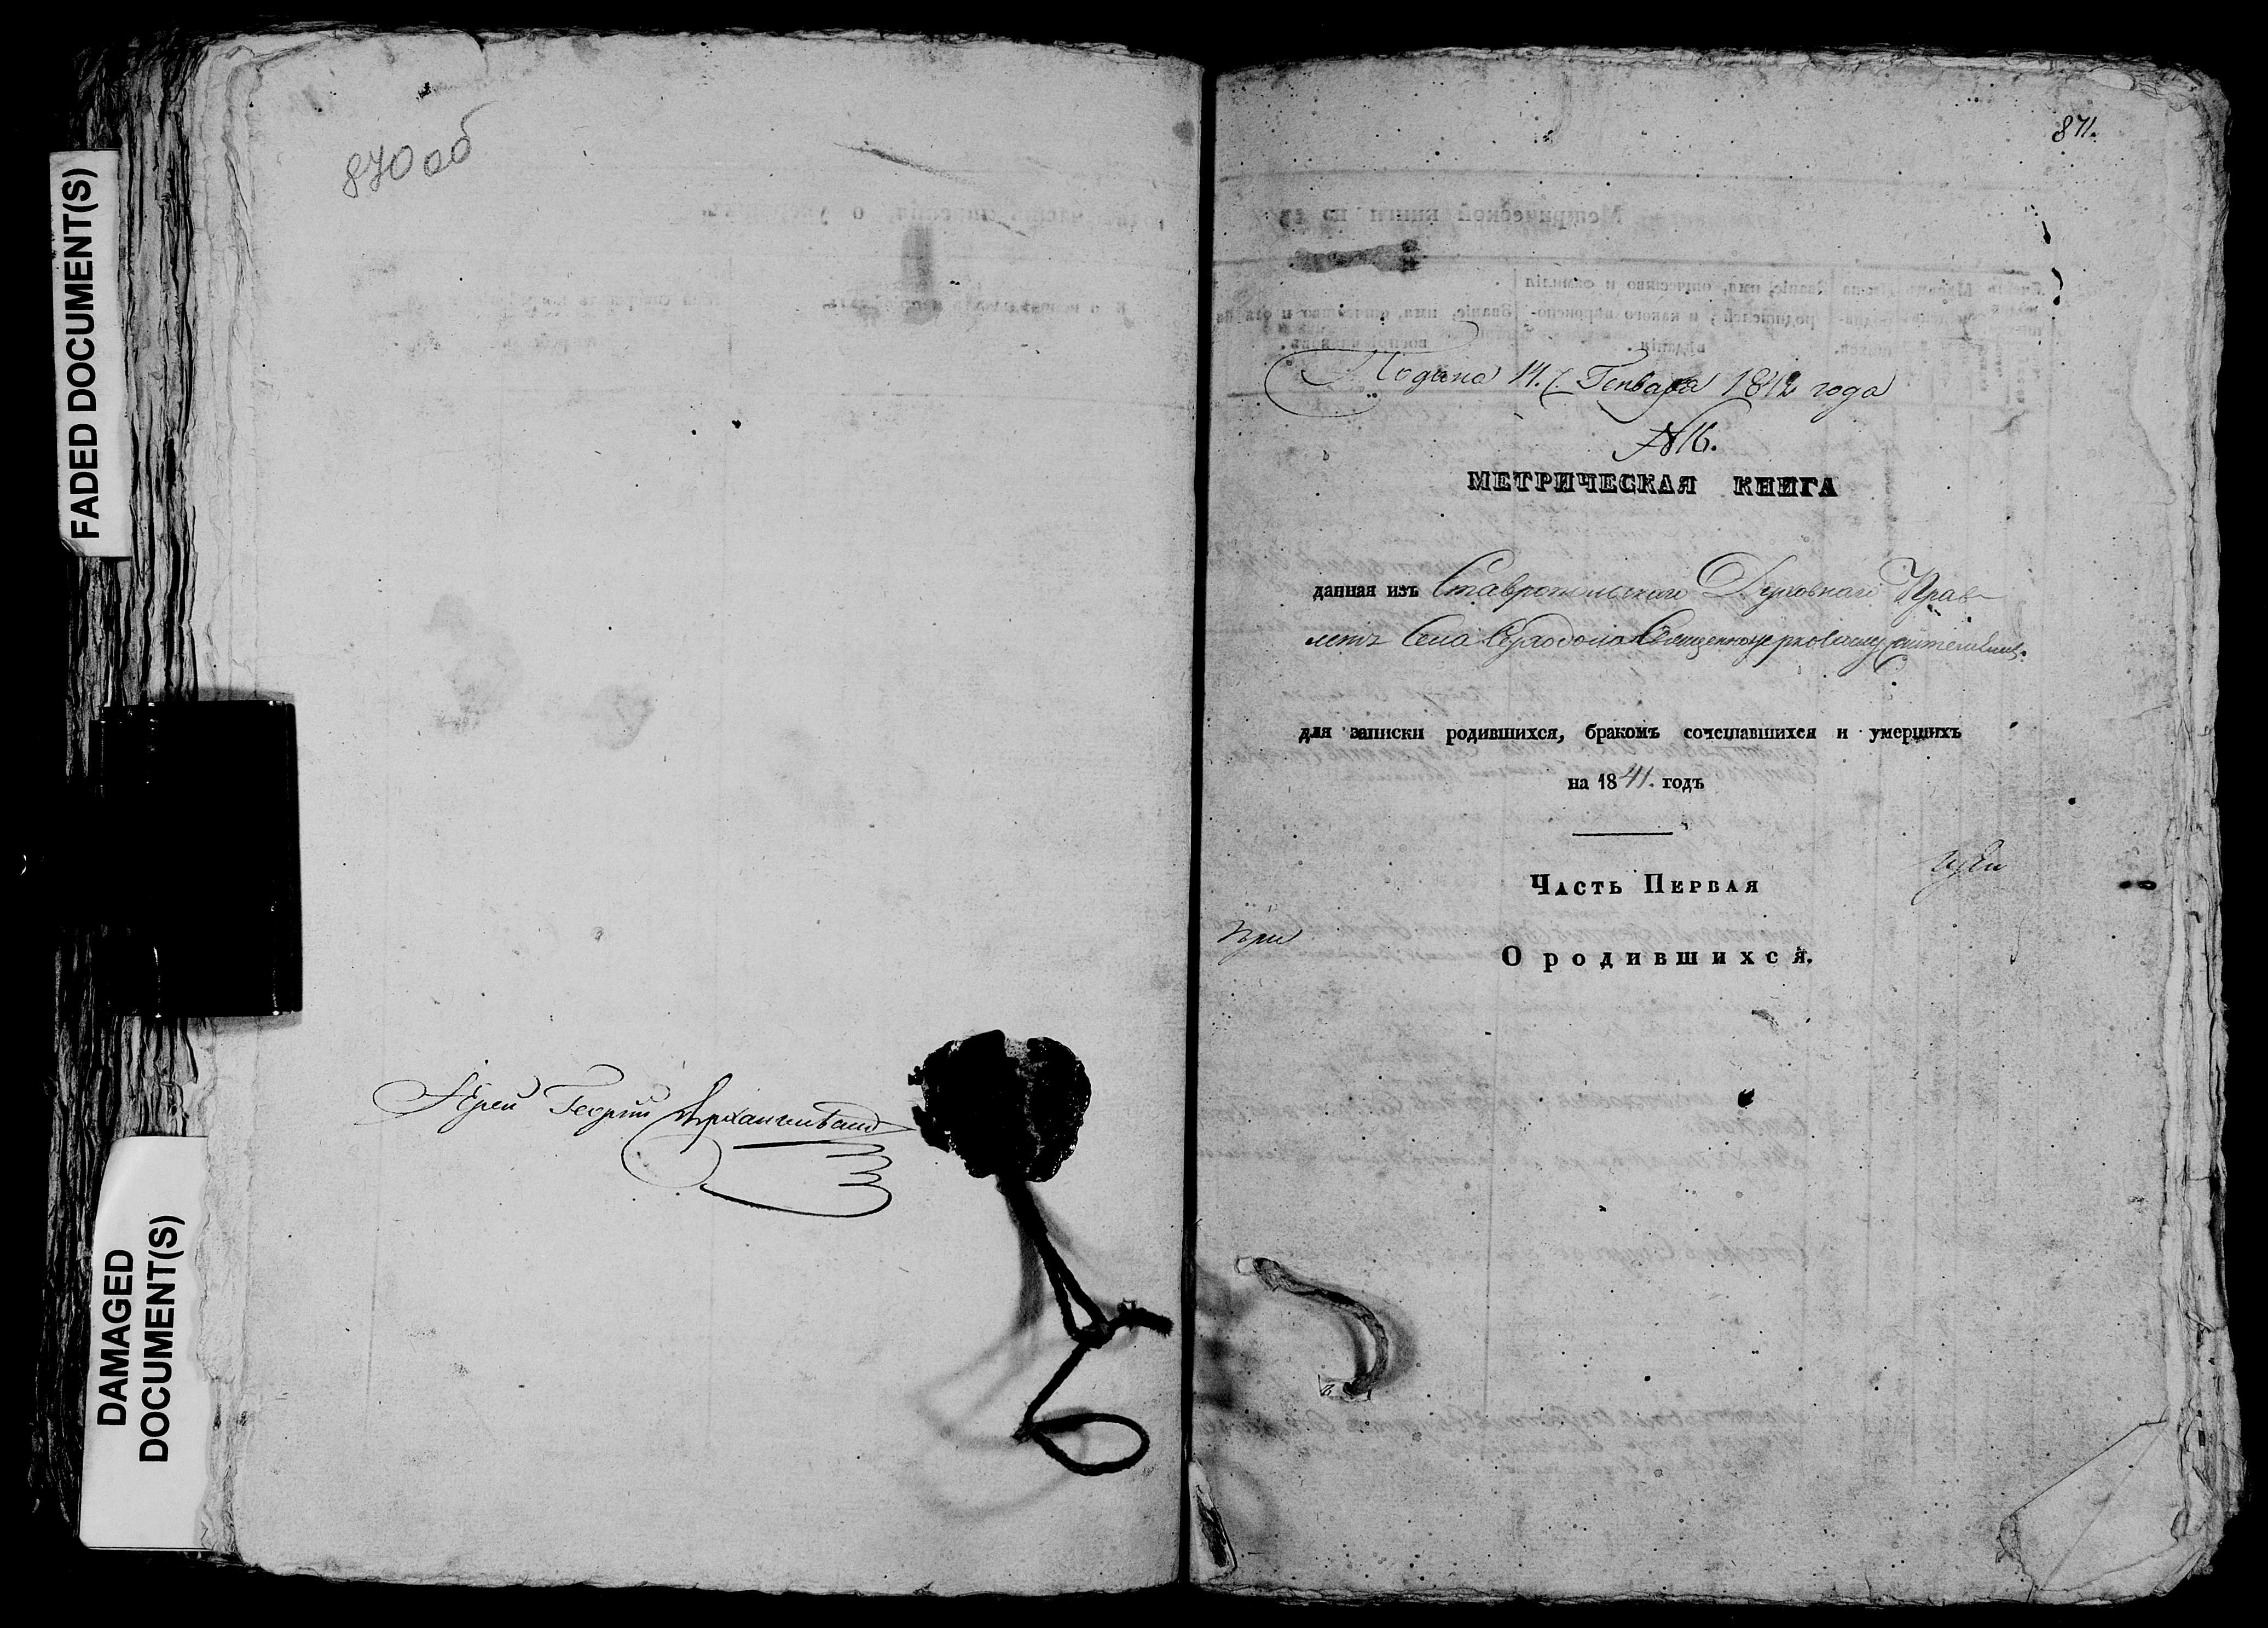 FADED DOCUMENT(S)
DAMAGED
DOCUMENT(S)
870 об
Іерей Георгий
871.
Подана 14. Генваря 1842 года
№ 16.
МЕТРИЧЕСКАЯ КНИГА
данная изъ Ставропольскаго Духовнаго Прав-
Села Священноцерковнослужителямъ
для записки родившихся, бракомъ сочетавшихся и умершихъ
на 1841. годъ
Часть Первая
При
О родившихся.